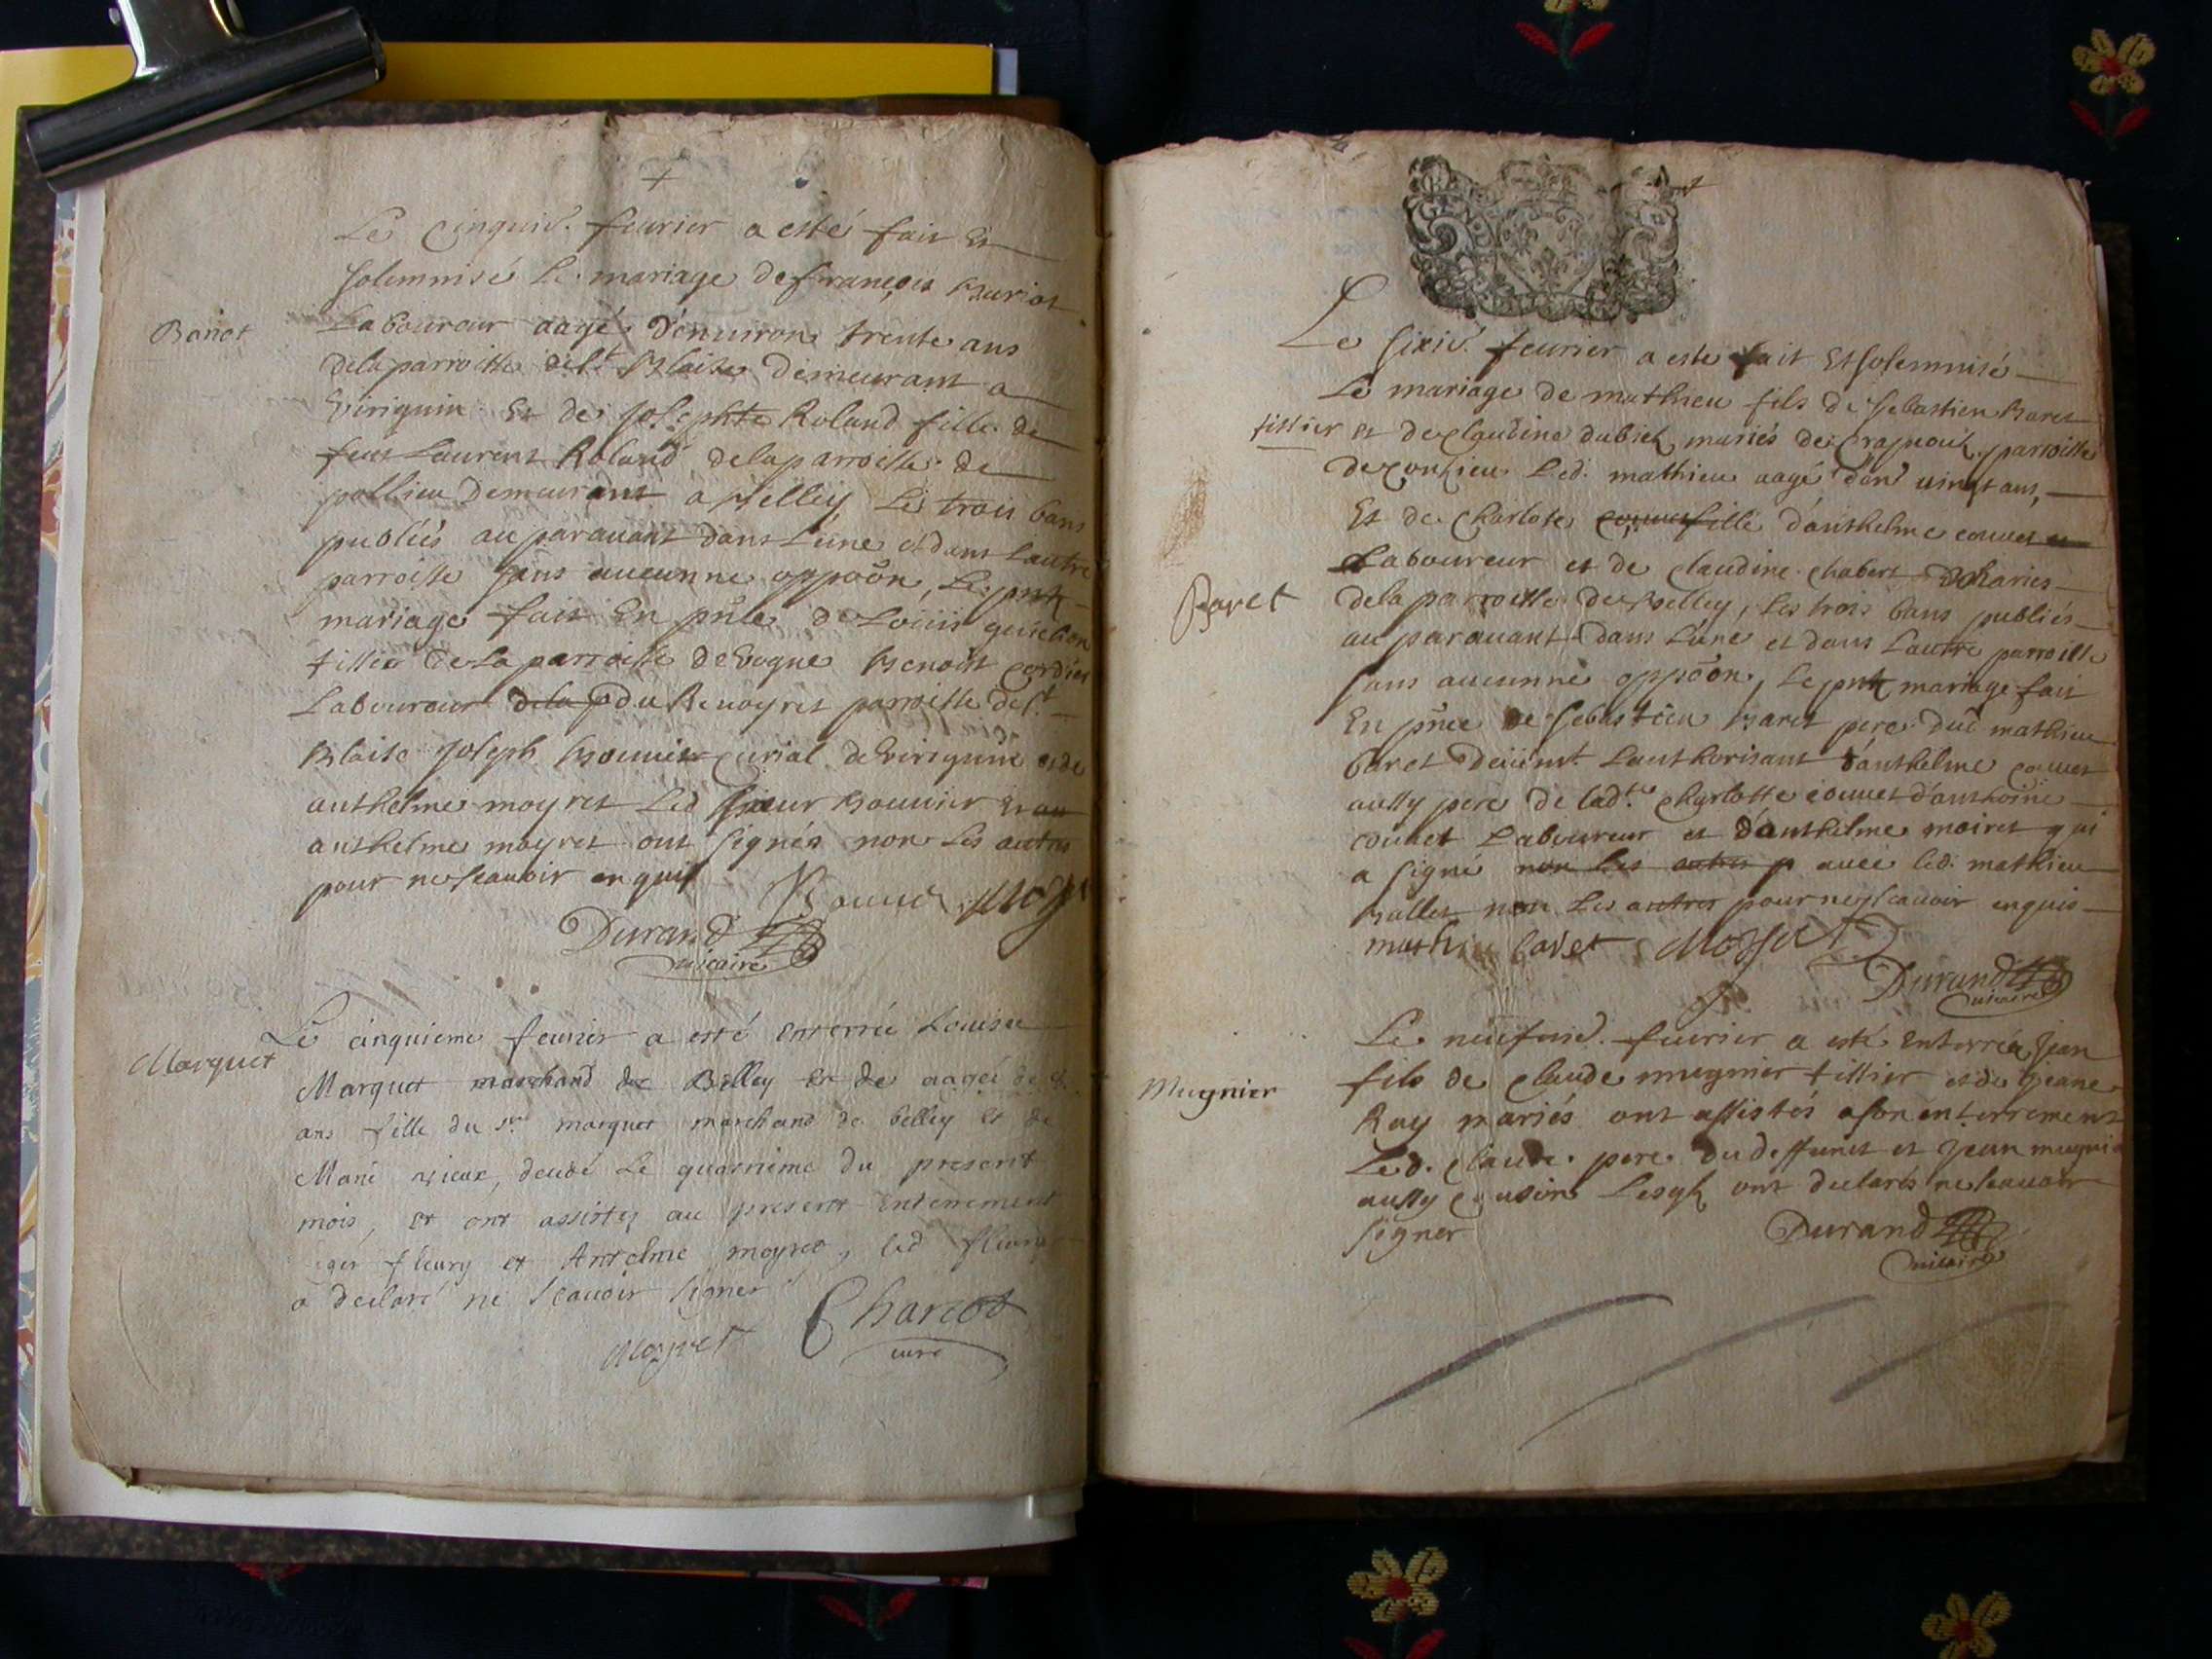 Le cinquie. feurier a esté fait Et
solemnisé Le mariage de françois
Bariot
Laboureur aagé d'enuiron trente ans
dela parroisse de st Blaise demeurant a
Eviriguin Et de Josephte Roland fille de
feut Laurent Roland delaparroisse de
pollieu Demeurant a Belley Les trois bans
publiés auparauant dans L'une et dans Lautre
parroisse sans aucunne oppoõn, Le pnt
mariage fait En pñce de Louis
tissier de La parroisse de Benoist Cordier
Laboureur dela p du parroisse de st
Blaise Joseph Bouuier Curial de Eviriguin et de
anthelme moyret Led sieur Bouuier Et an
anthelme moyret ont signés non Les autres
pour ne scauoir enquis
Bouuier
Durand
uicaire
Le cinquieme feurier a esté enterrée Louise
Marquet
Marquet marchand de Belley Et de aagée de
ans fille du sr marquet marchand de belley et de
Marie vieux, decedé Le quatrieme du present
mois, et ont assistez au present Enterrement
fleury et Antelme moyret, led fleury
a declaré ne scauoir signer
Moyret Charcot
curé
Le sixie. feurier a este fait Et solemnisé
Le mariage de mathieu fils de sebastien Baret
tissier et de Claudine dubiet mariés de parroisse
de Led. mathieu aagé d'en uingt ans,
Et de Charlote couuet fille d'anthelme couuet et
Laboureur et de Claudine Chabert mariés
Baret
dela parroisse de Belley, Les trois bans publiés
auparauant dans L'une et dans Lautre parroisse
sans aucunne oppoõn, Le pnt mariage fait
En pñce de sebastien Baret pere dud mathieu
baret Lauthorisant d'anthelme couuet
aussy pere de ladte Charlotte couuet d'anthoine
couuet Laboureur et d'anthelme moiret qui
a signé non Les autres p auec led. mathieu
Ballet non Les autres pour ne scauoir enquis
mathieu baret Moyret
Durand
uicaire
Le neufuie. feurier a esté Enterré Jean
Mugnier
fils de Claude mugnier tissier et de Jeane
Ray mariés ont assistés a son enterrement
Led. Claude pere du deffunct et Jean mugnier
aussy cousin Lesqls ont declarés ne scauoir
signer
Durand
uicaire